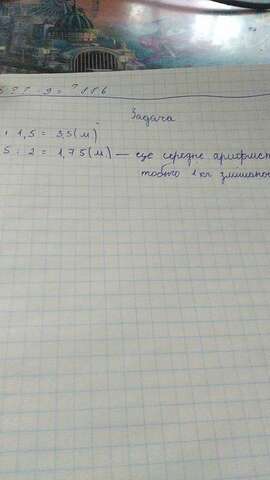 Задача
: 1,5 = 3,5 (м)
5 : 2 = 1,75 (м) — це середнє арифмет
тобто 1 кг змішаног